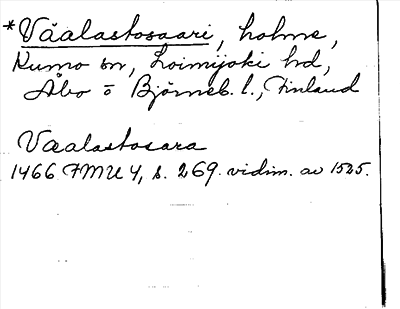 *Väalastosaari, holme,
Kumo sn, Loimijoki hd,
Åbo o Björneb. l., Finland
Vaalastosara
1466 FMU 4, s. 269. vidim. av 1525.